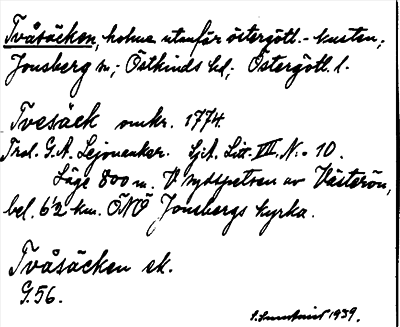 Tvåsäcken, holme utanför östergötl.-kusten;
Jonsberg sn; Östkinds hd; Östergötl. l.
Tvesäck omkr. 1774.
Trol. G.A. Lejonanker. Sjk. Litt. III. N:o 10.
Läge 800 m. V sydspetsen av Västerön,
bel. 6½ km. ÖNÖ Jonsbergs kyrka.
Tvåsäcken ek.
G.56.
1939.